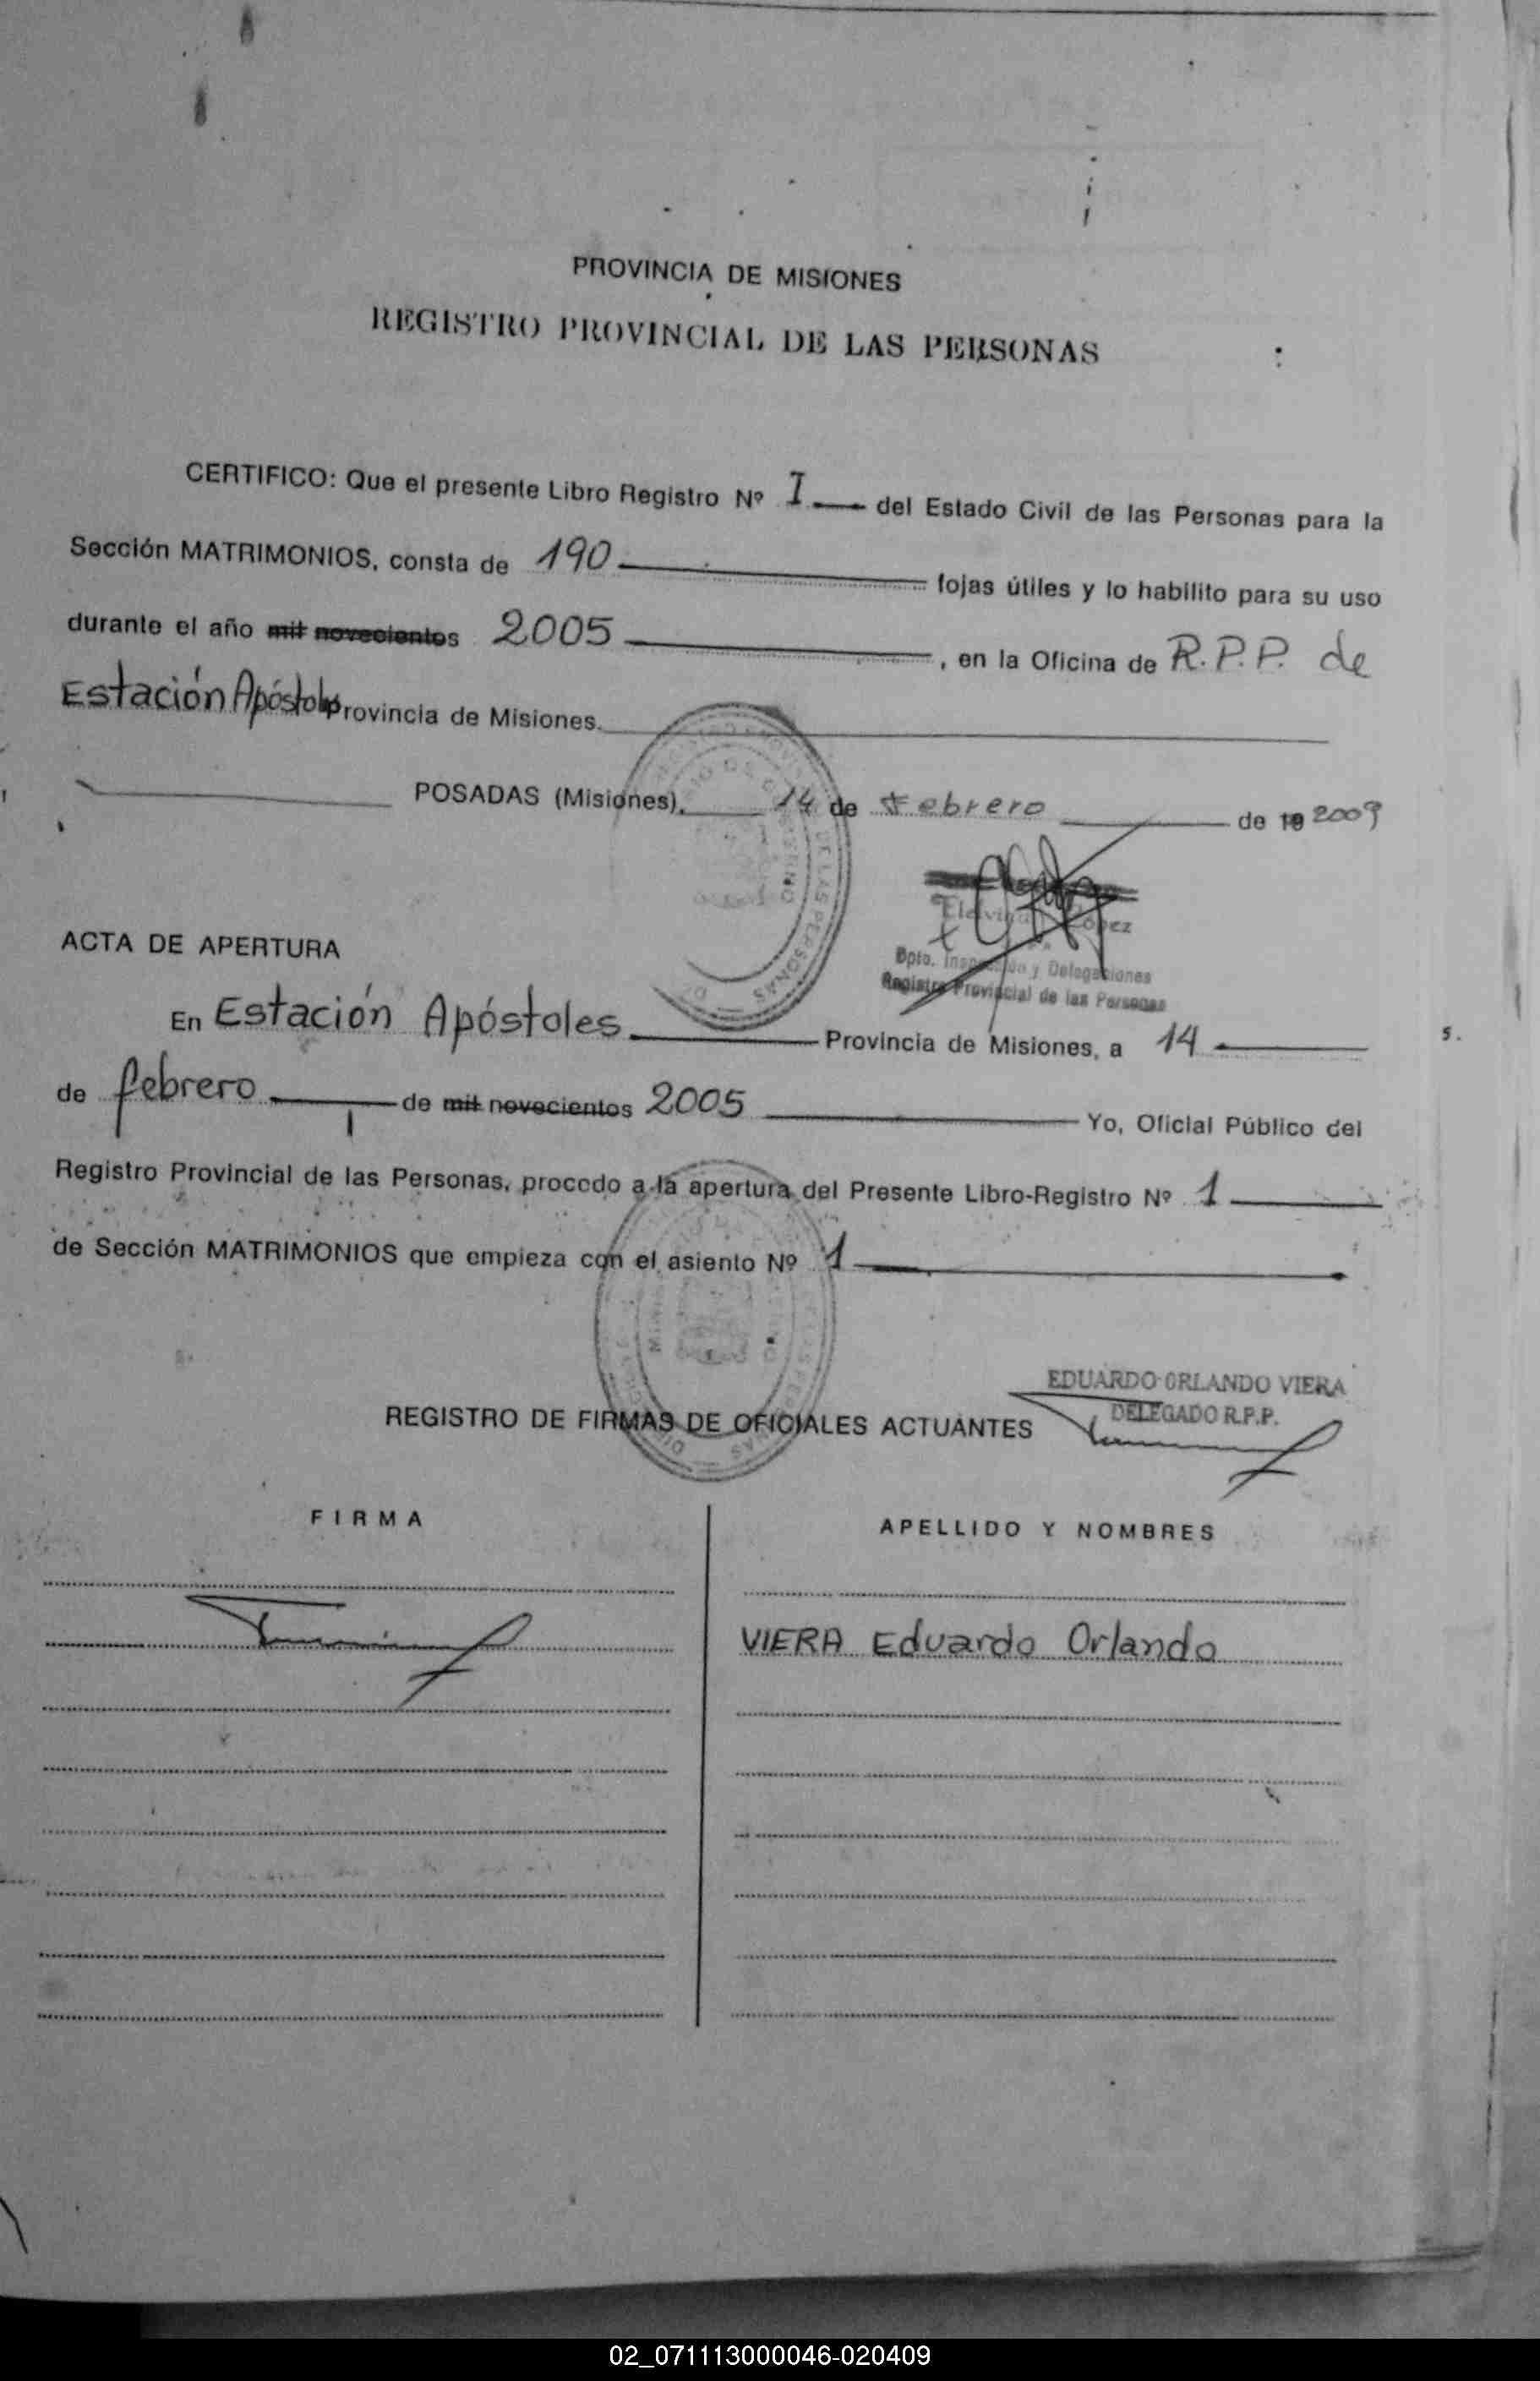 PROVINCIA DE MISIONES
REGISTRO PROVINCIAL DE LAS PERSONAS
CERTIFICO: Que el presente Libro Registro Nº I del Estado Civil de las Personas para la
Sección MATRIMONIOS, consta de 190 fojas útiles y lo habilito para su uso
durante el año mil novecientos 2005, en la Oficina de R.P.P. de
Estación Apóstoles Provincia de Misiones.
POSADAS (Misiones), 14 de Febrero de 19 2005
López
Dpto. Inspección y Delegaciones
Registro Provincial de las Personas
ACTA DE APERTURA
En Estación Apóstoles Provincia de Misiones, a 14
de febrero de mil novecientos 2005 Yo, Oficial Público del
Registro Provincial de las Personas, procedo a la apertura del Presente Libro-Registro Nº 1
de Sección MATRIMONIOS que empieza con el asiento Nº 1
EDUARDO ORLANDO VIERA
DELEGADO R.P.P.
REGISTRO DE FIRMAS DE OFICIALES ACTUANTES
FIRMA
APELLIDO Y NOMBRES
VIERA Eduardo Orlando
02_071113000046-020409